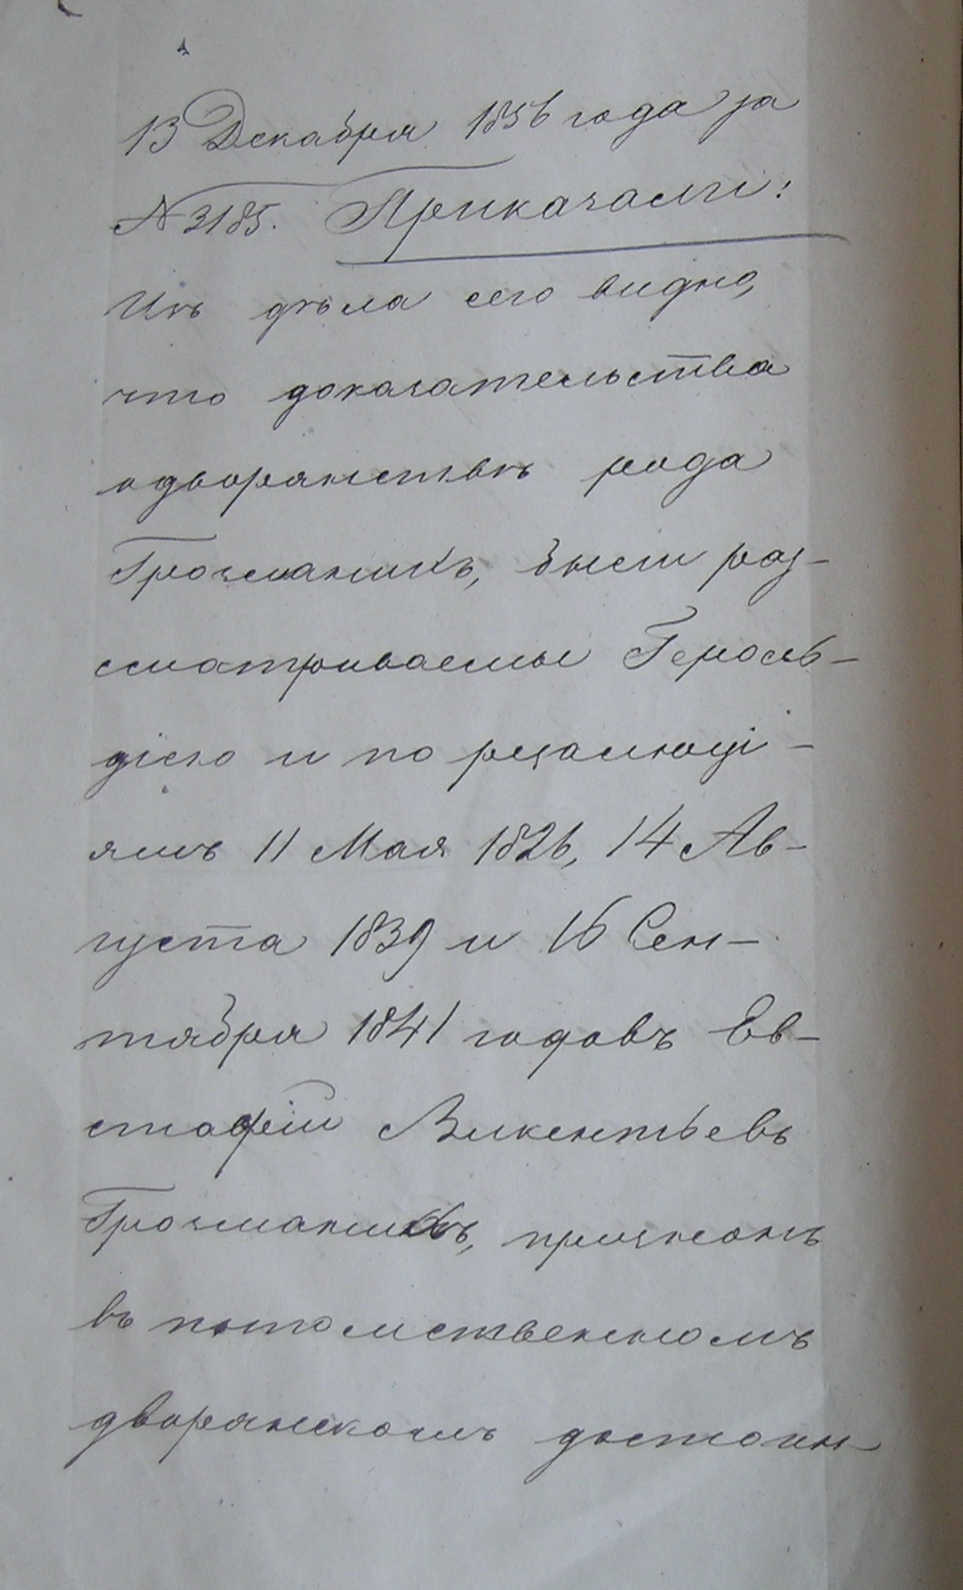 13 Декабря 1856 года за
№ 3185. Приказали:
Изъ дѣла сего видно,
что доказательства
о дворянствѣ рода
Грохмаликъ, были раз-
сматриваемы Героль-
діею и по резолюці-
ямъ 11 Мая 1826, 14 Ав-
густа 1839 и 16 Сен-
тября 1841 годовъ Ев-
стафій Викентьевъ
признанъ
въ потомственномъ
дворянскомъ достоин